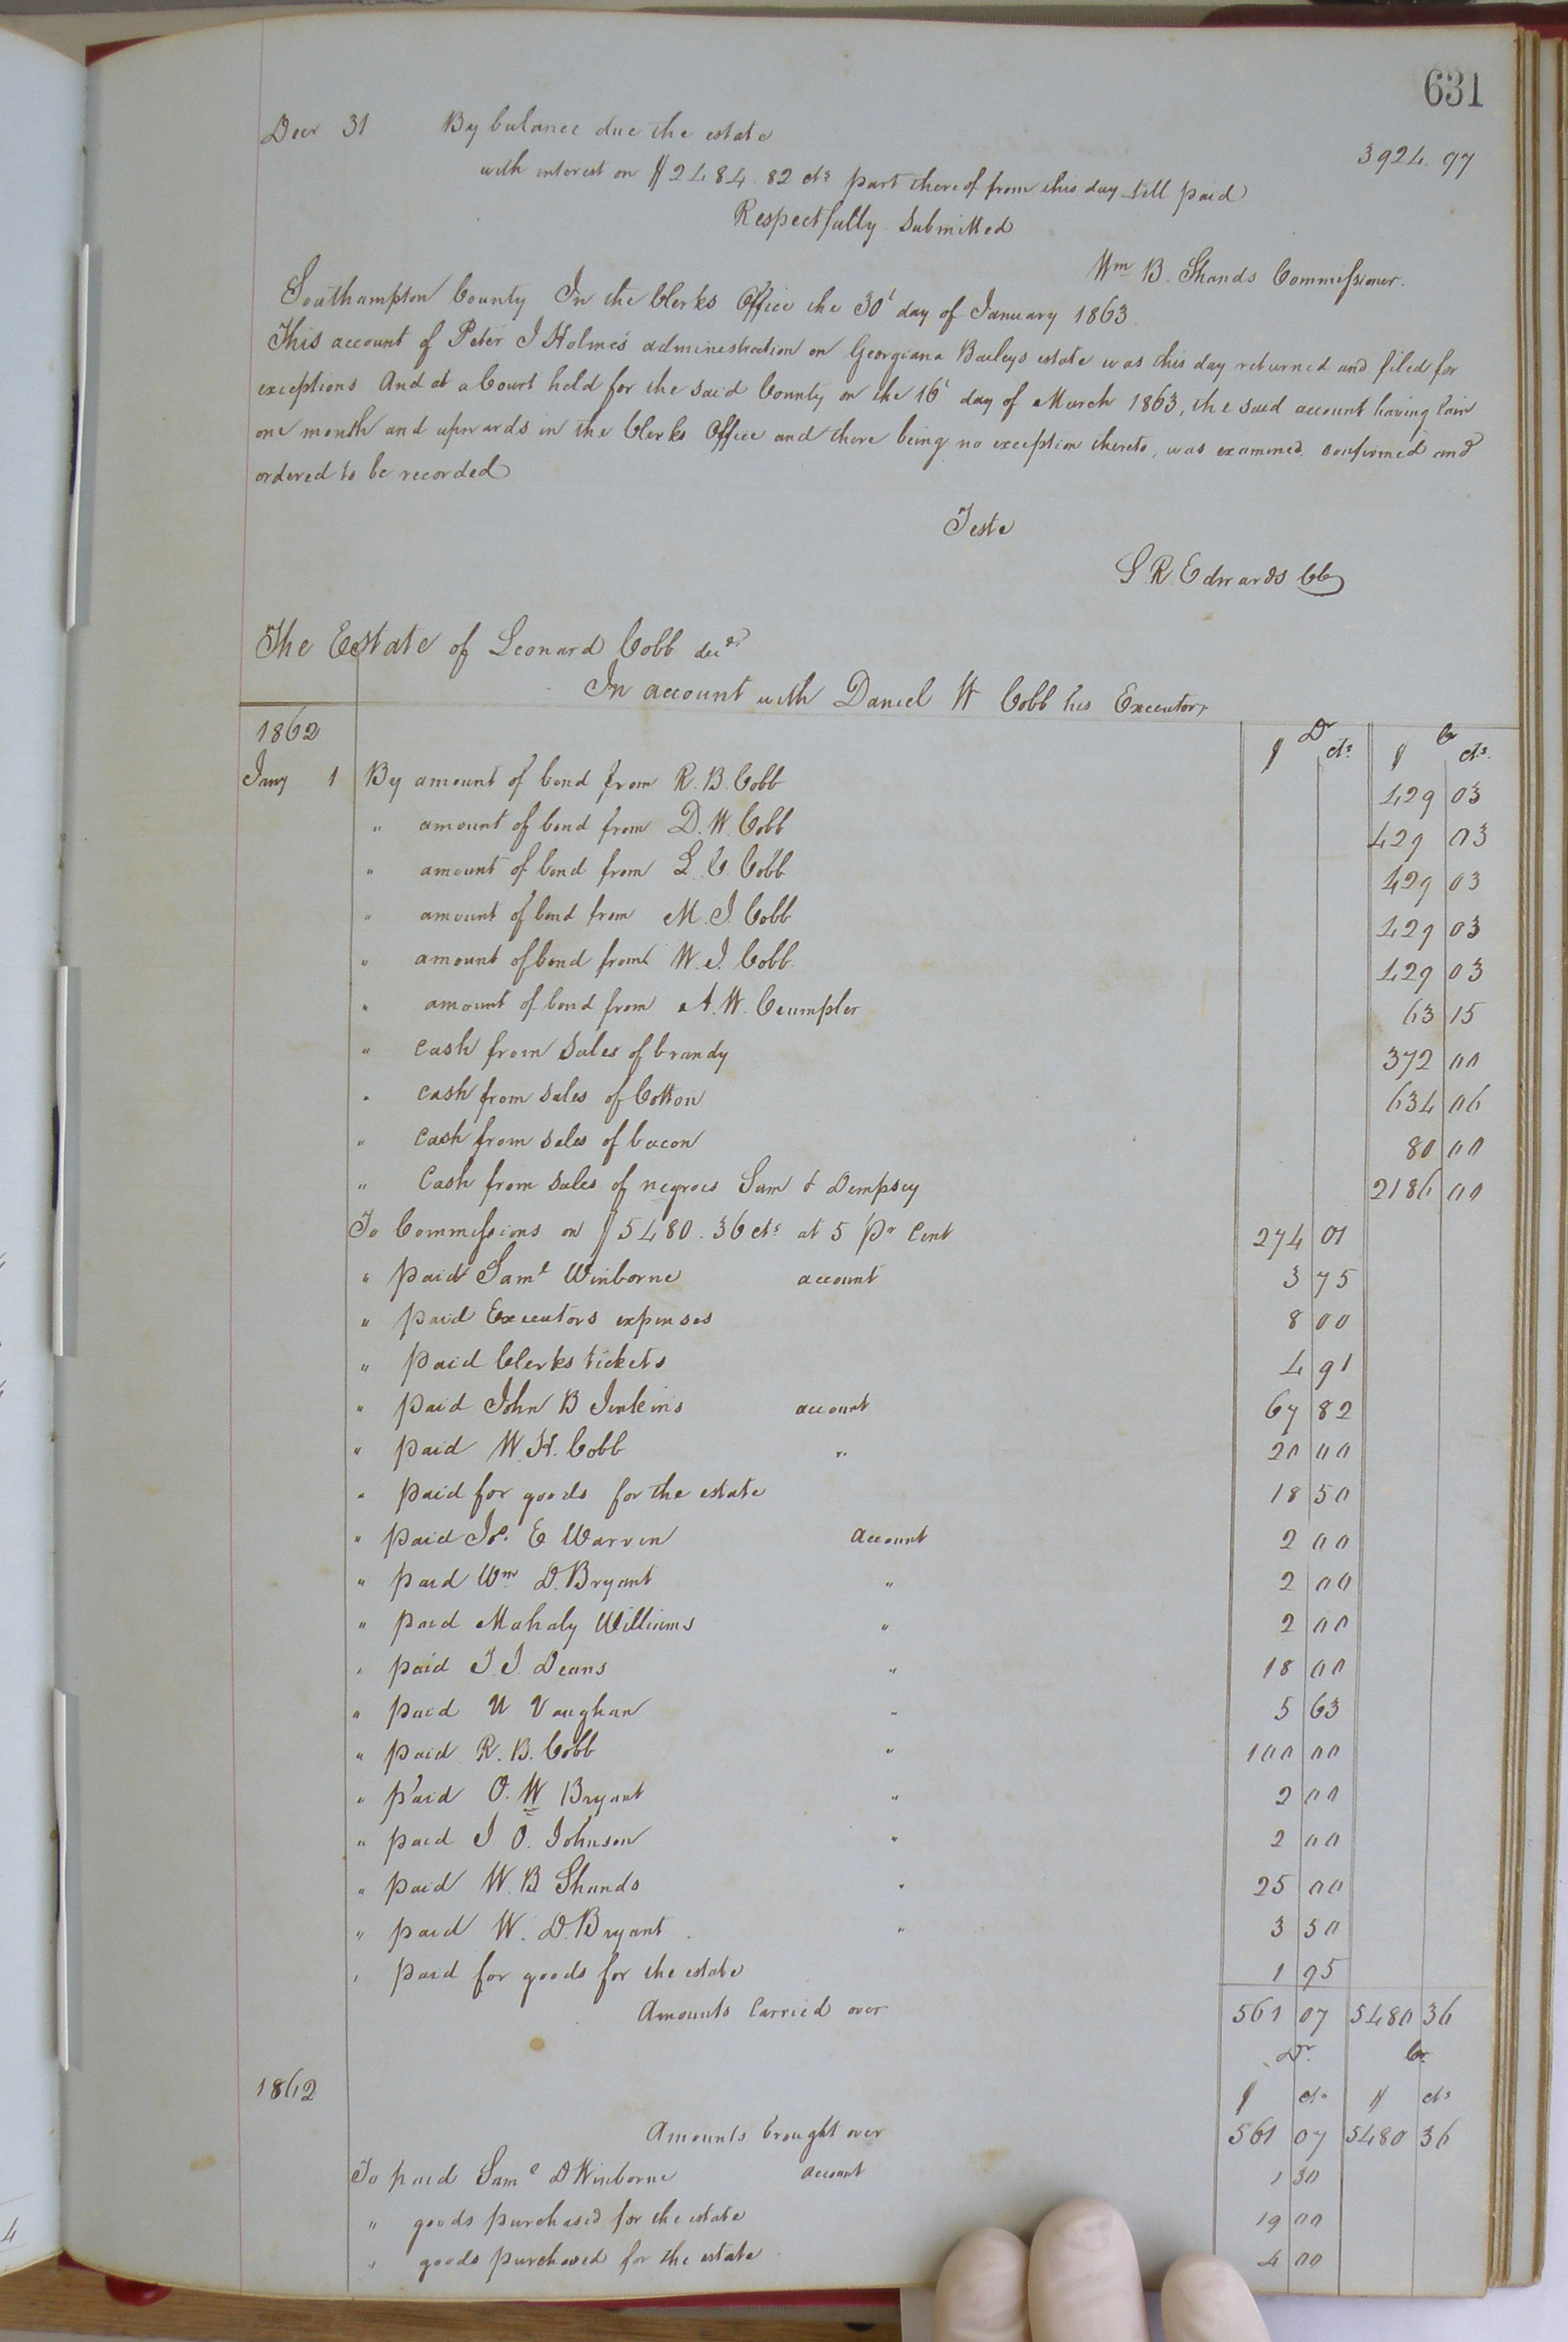 631
Decr 31 By balance due the estate 3924.97
with interest on $2484.82 cts part thereof from this day till paid
Respectfully submitted
Wm B. Shands Commissioner.
Southampton County In the Clerks Office the 30t day of January 1863.
This account of Peter J Holmes administration on Georgiana Baileys estate was this day returned and filed for
exceptions And at a Court held for the said County on the 16t day of March 1863, the said account having lain
one month and upwards in the Clerks Office and there being no exception thereto, was examined, confirmed and
ordered to be recorded
Teste
L. R. Edwards CC
The Estate of Leonard Cobb decd
In account with Daniel W Cobb his Executor,
1862 Dr Cr
$ cts. $ cts.
Jany 1 By amount of bond from R. B. Cobb 429 03
" amount of bond from D. W. Cobb 429 03
" amount of bond from L. C. Cobb 429 03
" amount of bond from M. J. Cobb 429 03
" amount of bond from W. J. Cobb. 429 03
" amount of bond from A. W. Crumpler 63 15
" cash from sales of brandy 372 00
" cash from sales of Cotton 634 06
" cash from sales of bacon 80 00
" Cash from sales of negroes Sam & Dempsey 2186 00
To Commissions on $5480.36 cts at 5 Pr Cent 274 01
" paid Saml Winborne account 3 75
" paid Executors expenses 8 00
" paid Clerks tickets 4 91
" paid John B Jenkins account 67 82
" paid W. H. Cobb " 20 00
" paid for goods for the estate 18 50
" paid Jos. E Warren account 2 00
" paid Wm D. Bryant " 2 00
" paid Mahaly Williams " 2 00
" paid J. J. Deans " 18 00
" paid U Vaughan " 5 63
" paid R. B. Cobb " 100 00
" paid O. W Bryant " 2 00
" paid J O. Johnson " 2 00
" paid W. B Shands " 25 00
" paid W. D. Bryant " 3 50
" paid for goods for the estate 1 95
Amounts Carried over 561 07 5480 36
Dr. Cr.
1862 $ cts $ cts
Amounts brought over 561 07 5480 36
To paid Saml D Winborne account 1 30
" goods purchased for the estate 19 00
" goods purchased for the estate 4 00